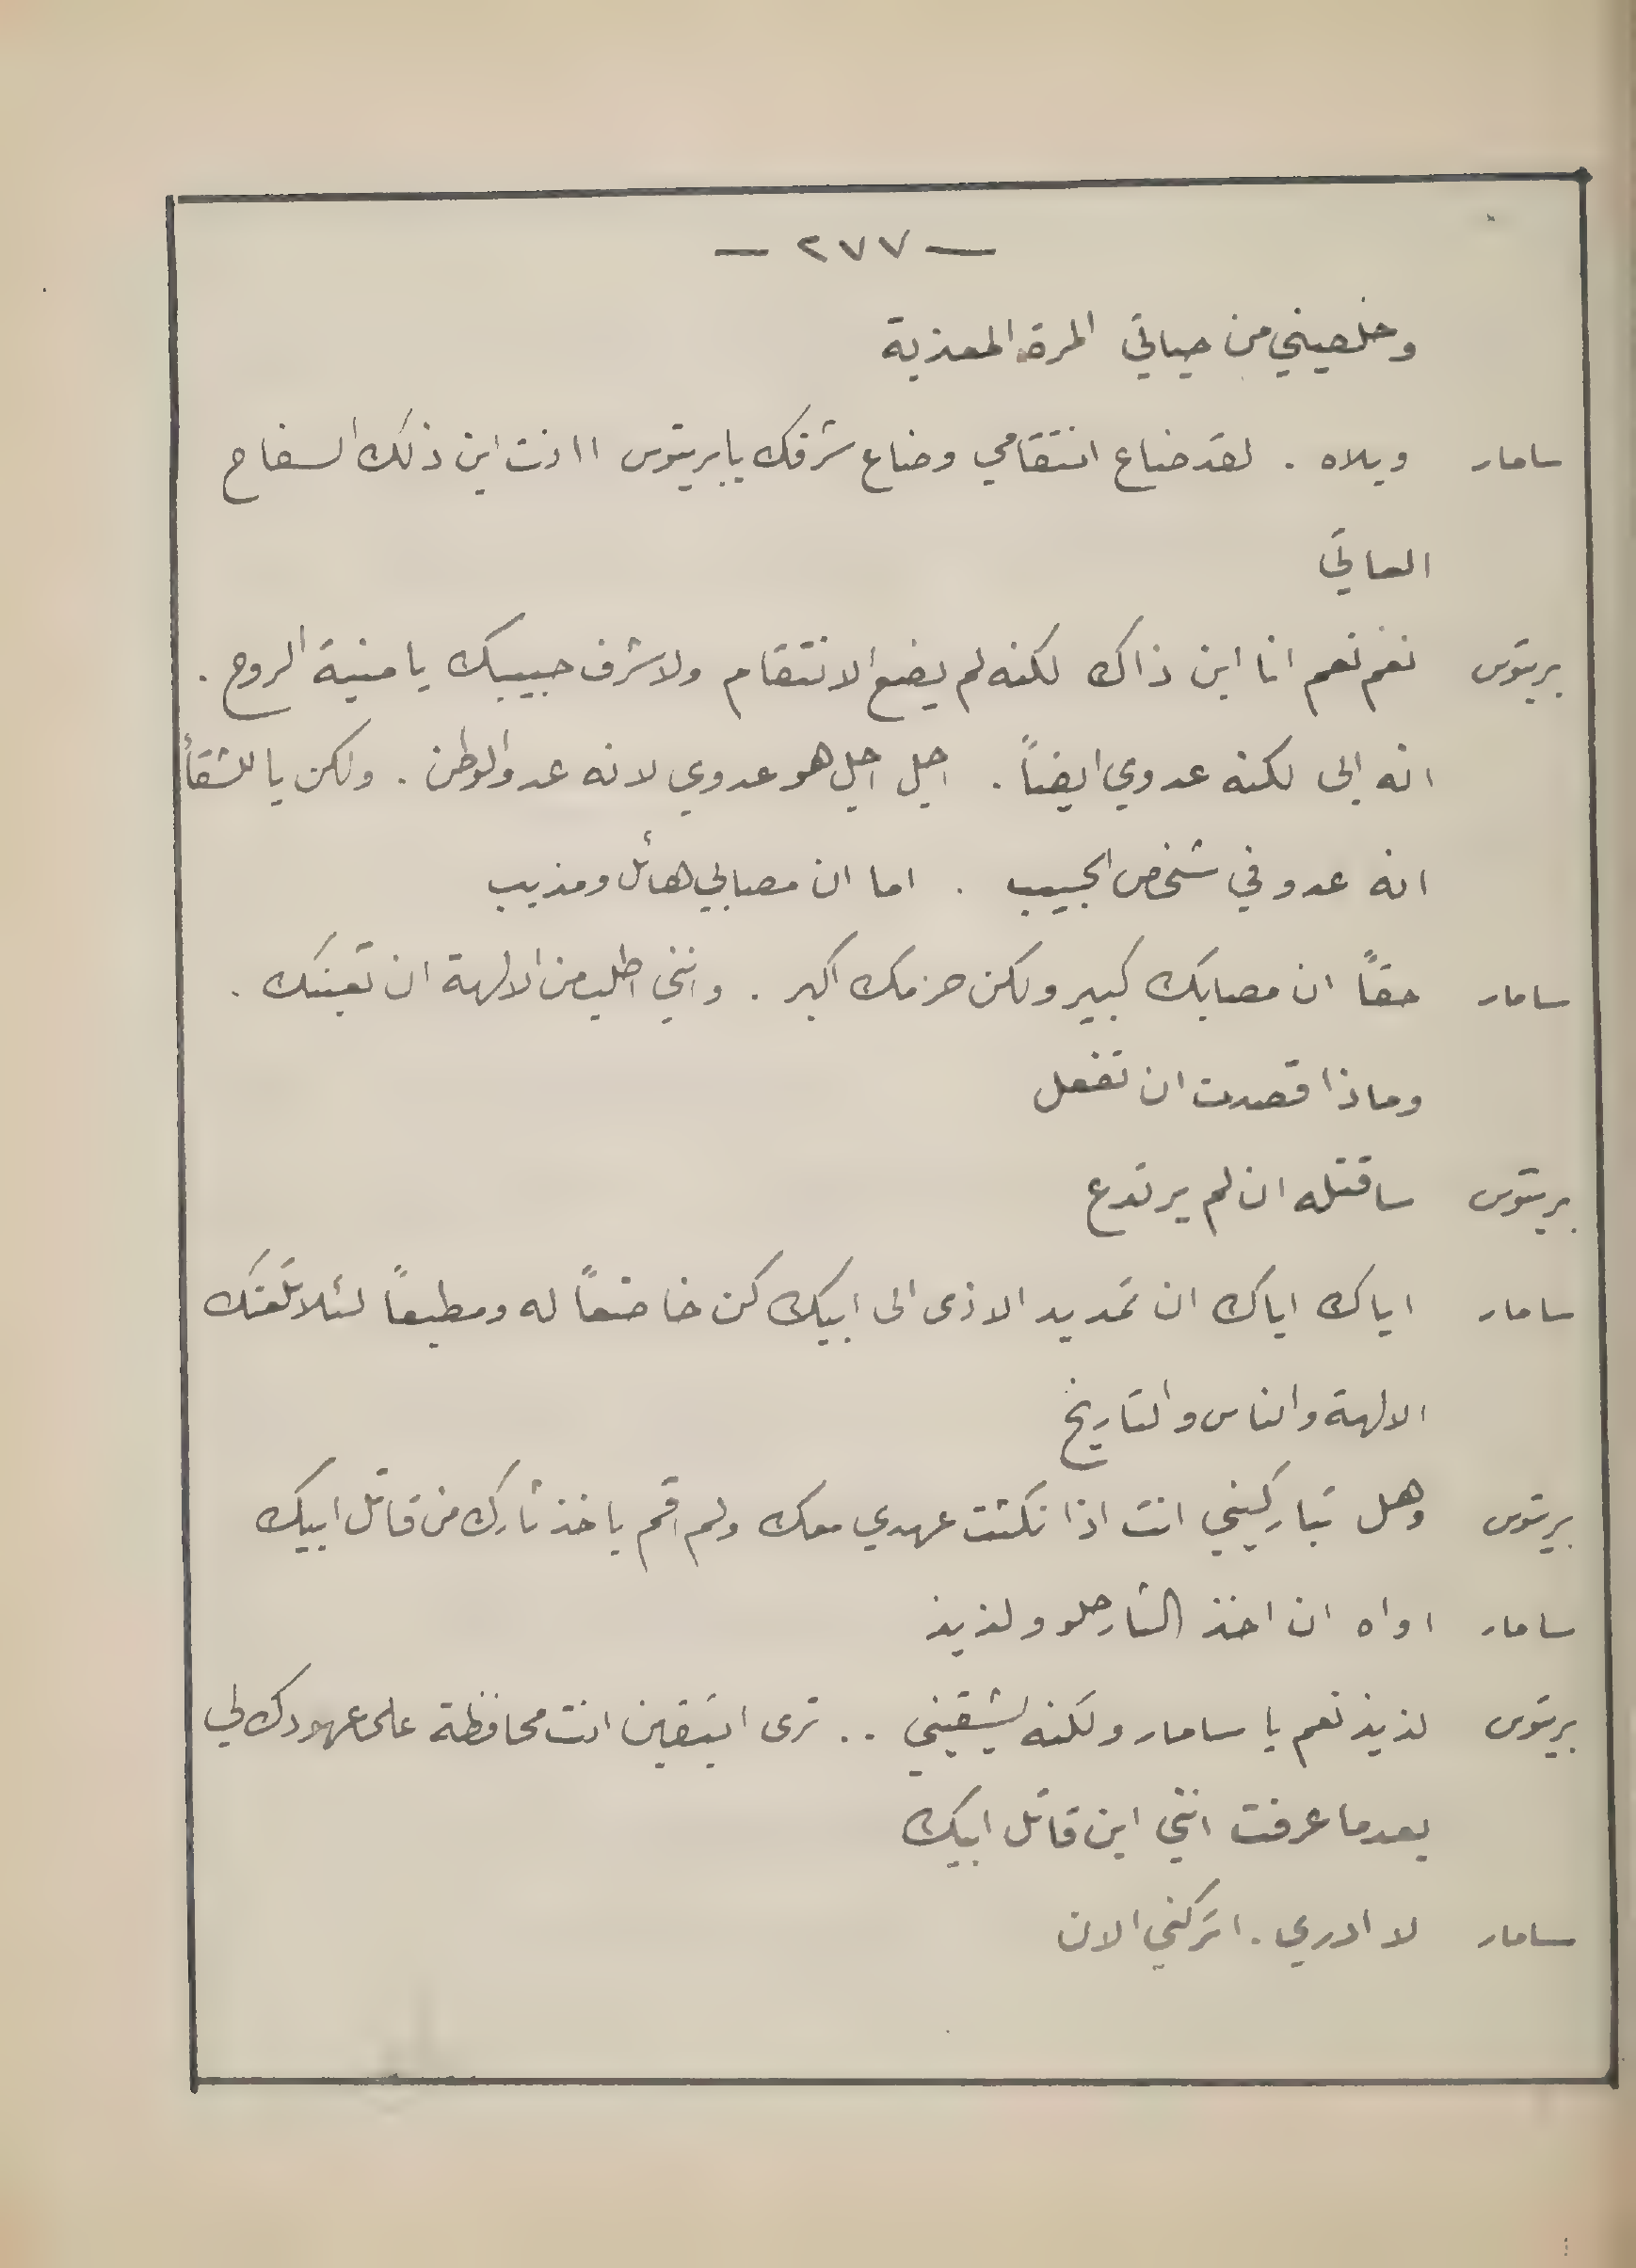 — ٢٧٧ —
وخلصيني من حياتي المرة المعذبة
سامار ويلاه . لقد ضاع انتقامي وضاع شرفك يا بريتوس اانت ابن ذلك السفاح
العاتي
بريتوس نعم نعم انا ابن ذاك لكنه لم يضع الانتقام ولا شرف حبيبك يا منية الروح .
انه ابي لكنه عدوي ايضاً . اجل اجل هو عدوي لانه عدو الوطن . ولكن يا للشقأ
انه عدو في شخص الحبيب . اما ان مصابي هائل ومذيب
سامار حقاً ان مصابك كبير ولكن حزمك اكبر . وانني اطلب من الالهة ان تعينك .
وماذا قصدت ان تفعل
بريتوس ساقتله ان لم يرتدع
سامار اياك اياك ان تمد يد الاذى الى ابيك كن خاضعاً له ومطيعاً لئلا تلعنك
الالهة والناس والتاريخ
بريتوس وهل تباركيني انت اذا نكثت عهدي معك ولم اقم باخذ ثارك من قاتل ابيك
سامار اواه ان اخذ الثار حلو ولذيذ
بريتوس لذيذ نعم يا سامار ولكنه ليشقيني .. ترى اتبقين انت محافظة على عهودك لي
بعدما عرفت انني ابن قاتل ابيك
سامار لا ادري . اتركني الان